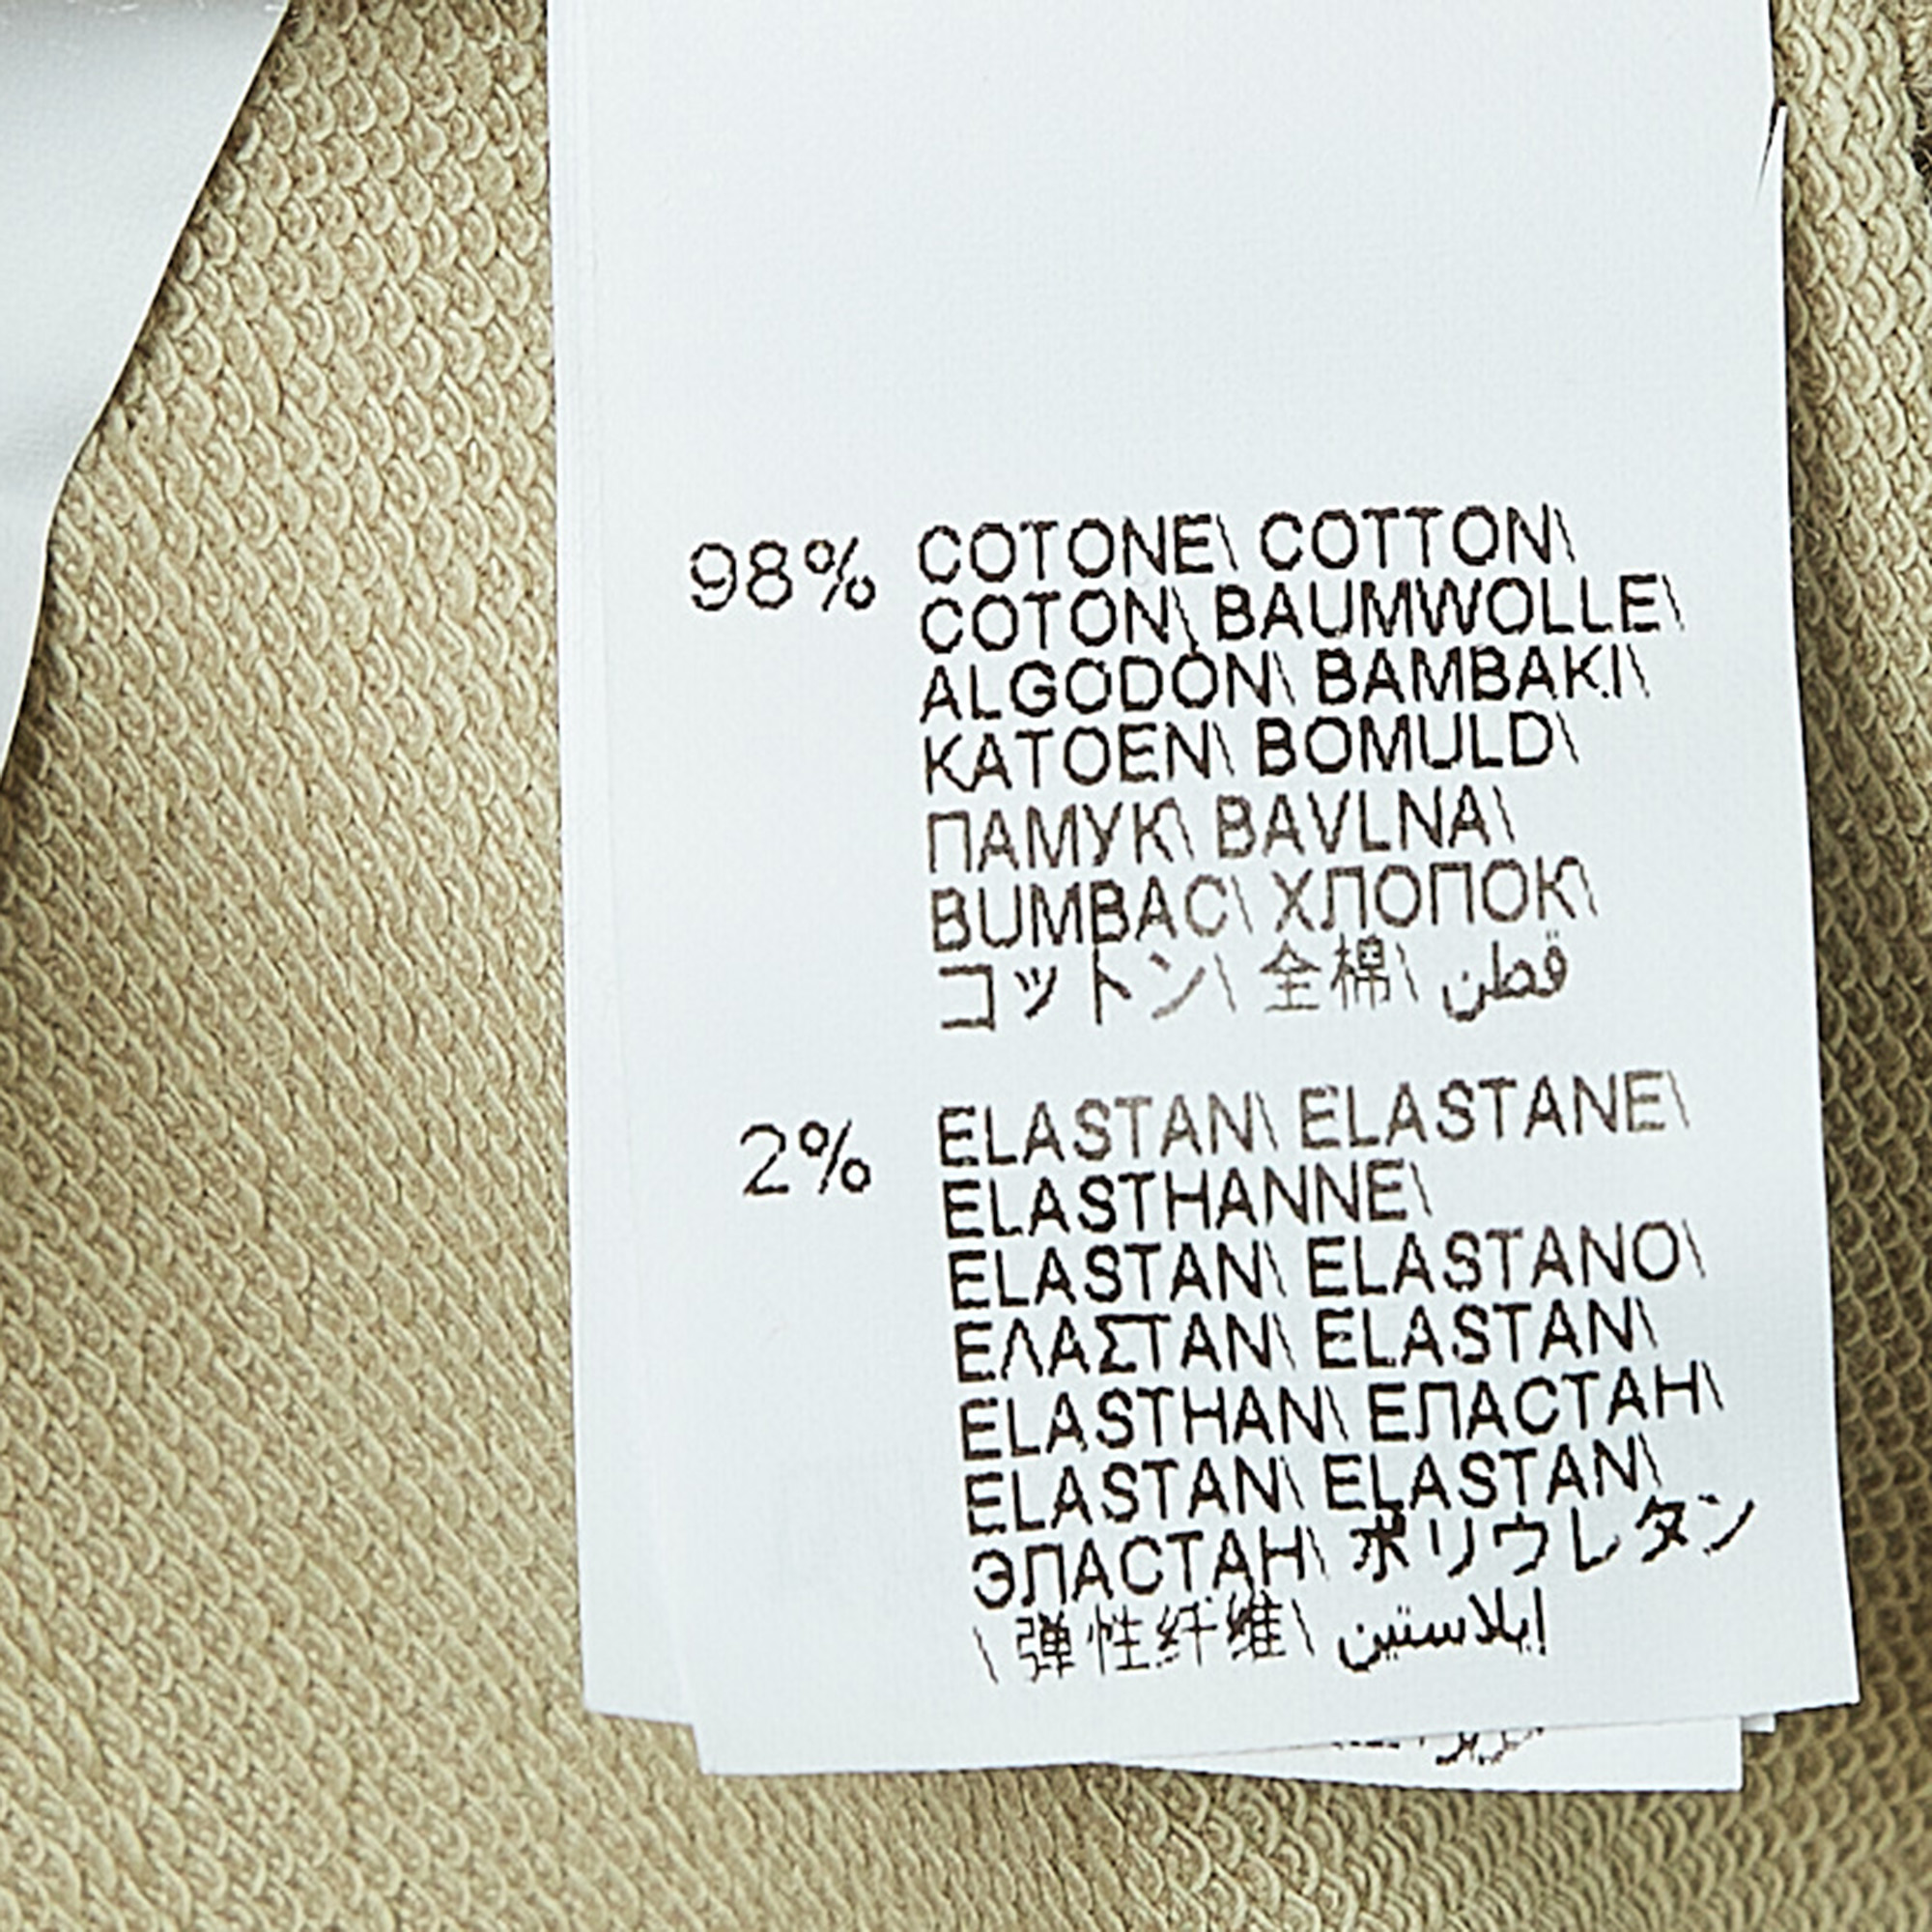 98% COTONE\ COTTON\
COTON\ BAUMWOLLE\
ALGODON\ BAMBAKI\
KATOEN\ BOMULD\
ПАМУК\ BAVLNA\
BUMBAC\ ХЛОПОК\
コットン\ 全棉\ قطن
2% ELASTAN\ ELASTANE\
ELASTHANNE\
ELASTAN\ ELASTANO\
ΕΛΑΣΤΑΝ\ ELASTAN\
ELASTHAN\ ЕЛАСТАН\
ELASTAN\ ELASTAN\
ЭЛАСТАН\ ポリウレタン
\ 弹性纤维\ إيلاستين